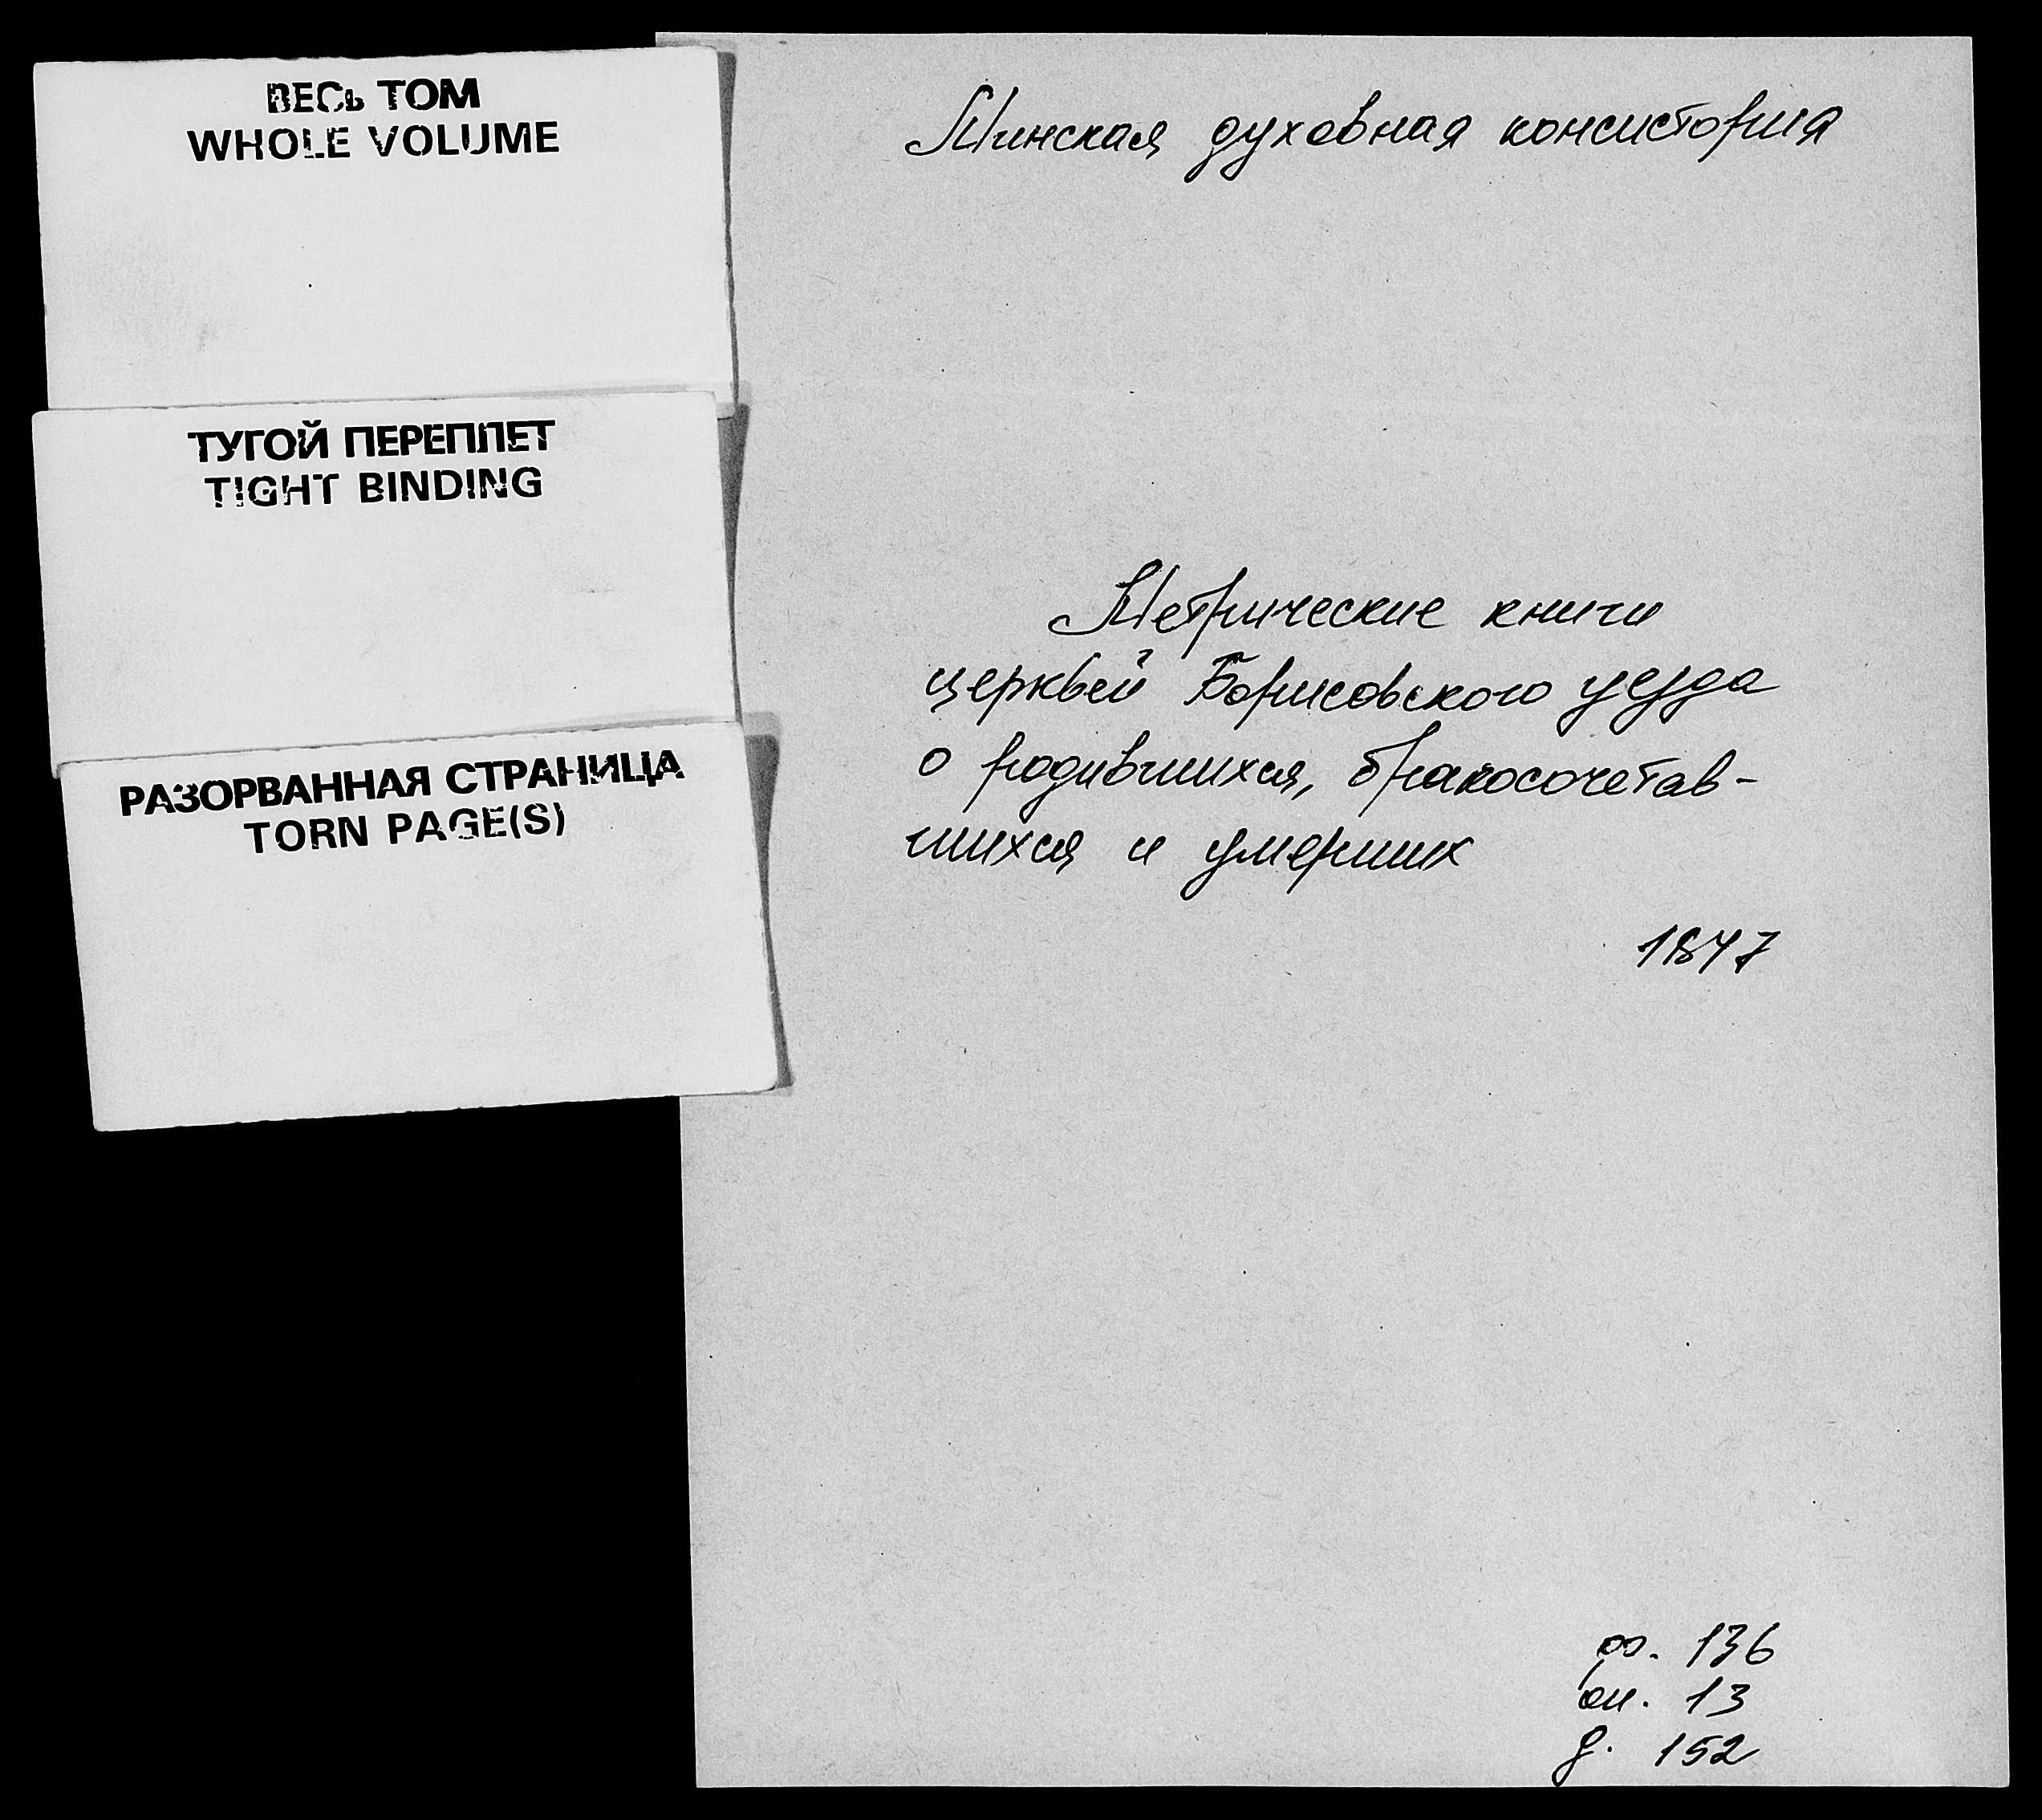 ВЕСЬ ТОМ
WHOLE VOLUME
ТУГОЙ ПЕРЕПЛЕТ
TIGHT BINDING
РАЗОРВАННАЯ СТРАНИЦА
TORN PAGE(S)
Минская духовная консистория
Метрические книги
церквей Борисовского уезда
о родившихся, бракосочетав-
шихся и умерших
1847
ф. 136
оп. 13
д. 152